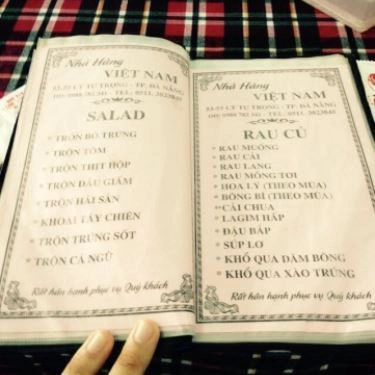 Nhà Hàng
VIỆT NAM
53-55 LÝ TỰ TRỌNG - TP. ĐÀ NẴNG
SALAD
TRỘN BÒ TRỨNG
TRỘN TÔM
TRỘN THỊT HỘP
TRỘN DẦU GIẤM
TRỘN HẢI SẢN
KHOAI TÂY CHIÊN
TRỘN TRỨNG SỐT
TRỘN CÁ NGỪ
Rất hân hạnh phục vụ Quý khách
Nhà Hàng
VIỆT NAM
53-55 LÝ TỰ TRỌNG - TP. ĐÀ NẴNG
RAU CỦ
RAU MUỐNG
RAU CẢI
RAU LANG
RAU MỒNG TƠI
HOA LÝ (THEO MÙA)
BÔNG BÍ (THEO MÙA)
CẢI CHUA
LAGIM HẤP
ĐẬU BẮP
SÚP LƠ
KHỔ QUA DẦM BÔNG
KHỔ QUA XÀO TRỨNG
Rất hân hạnh phục vụ Quý khách